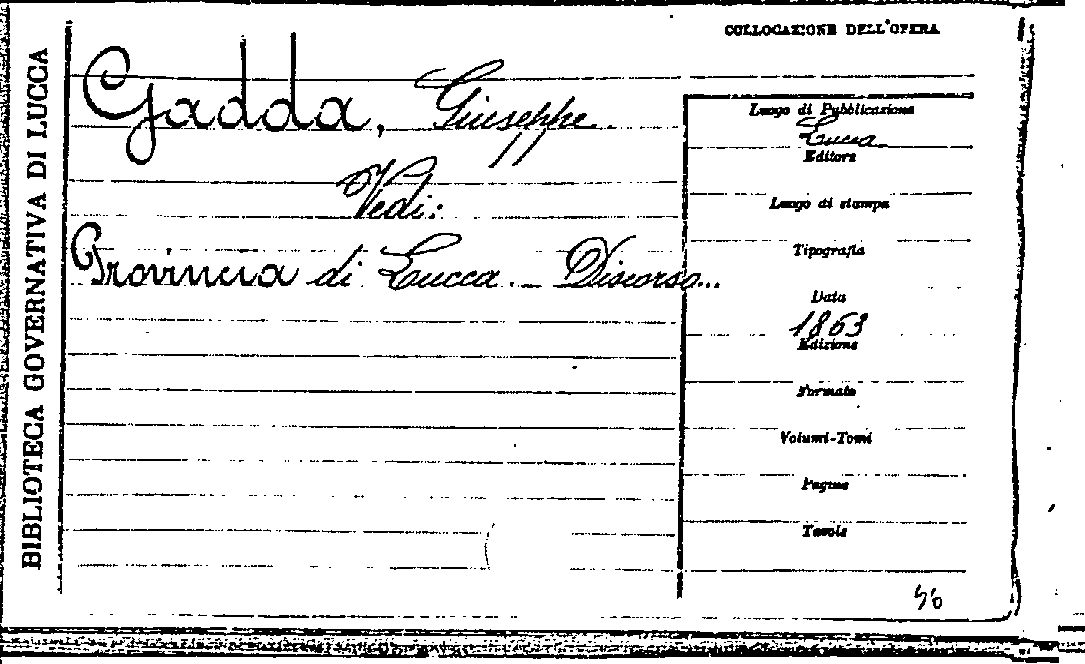 BIBLIOTECA GOVERNATIVA DI LUCCA
COLLOCAZIONE DELL'OPERA
Gadda, Giuseppe
Vedi:
Provincia di Lucca. – Discorso...
Luogo di Pubblicazione
Lucca
Editore
Luogo di stampa
Tipografia
Data
1863
Edizione
Formato
Volumi-Tomi
Pagine
Tavole